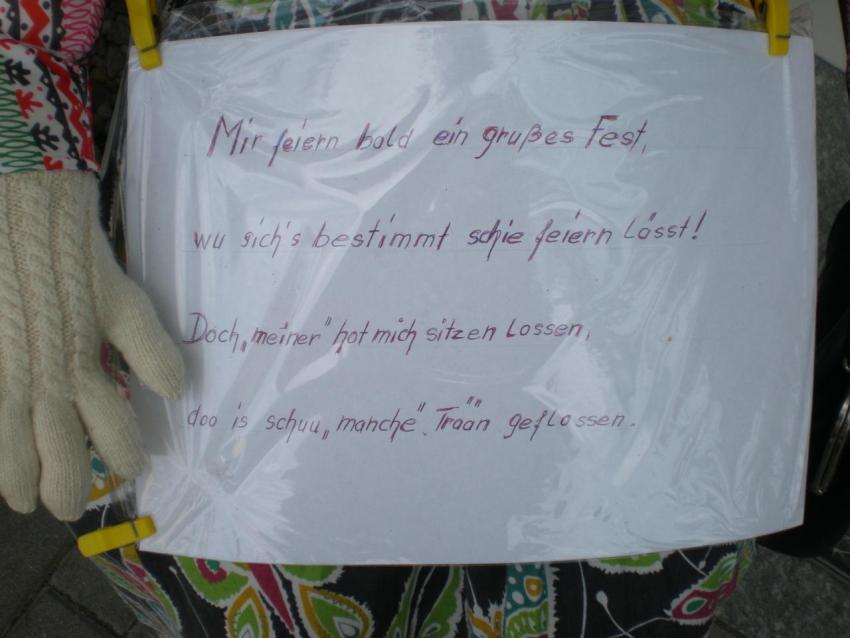 Mir feiern bald ein grußes Fest,
wu sich's bestimmt schie feiern lässt!
Doch „meiner" hot mich sitzen lossen,
doo is schuu „manche" Trään geflossen.